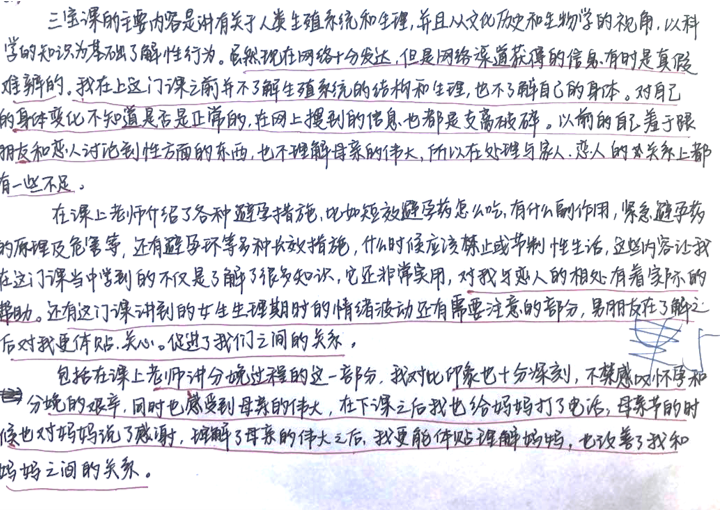 三宝课的主要内容是讲有关于人类生殖系统和生理,并且从文化历史和生物学的视角,以科
学的知识为基础了解性行为。虽然现在网络十分发达,但是网络渠道获得的信息有时是真假
难辨的。我在上这门课之前并不了解生殖系统的结构和生理,也不了解自己的身体。对自己
的身体变化不知道是否是正常的,在网上搜到的信息也都是支离破碎。以前的自己羞于跟
朋友和恋人讨论到性方面的东西,也不理解母亲的伟大,所以在处理与家人、恋人的关系上都
有一些不足。
在课上老师介绍了各种避孕措施,比如短效避孕药怎么吃,有什么副作用,紧急避孕药
的原理及危害等,还有避孕环等多种长效措施,什么时候应该禁止或节制性生活,这些内容让我
在这门课当中学到的不仅是了解了很多知识,它还非常实用,对我与恋人的相处有着实际的
帮助。还有这门课讲到的女生生理期时的情绪波动还有需要注意的部分,男朋友在了解之
后对我更体贴、关心。促进了我们之间的关系。
包括在课上老师讲分娩过程的这一部分,我对此印象也十分深刻,不禁感叹怀孕和
分娩的艰辛,同时也感受到母亲的伟大,在下课之后我也给妈妈打了电话,母亲节的时
候也对妈妈说了感谢,理解了母亲的伟大之后,我更能体贴理解妈妈,也改善了我和
妈妈之间的关系。